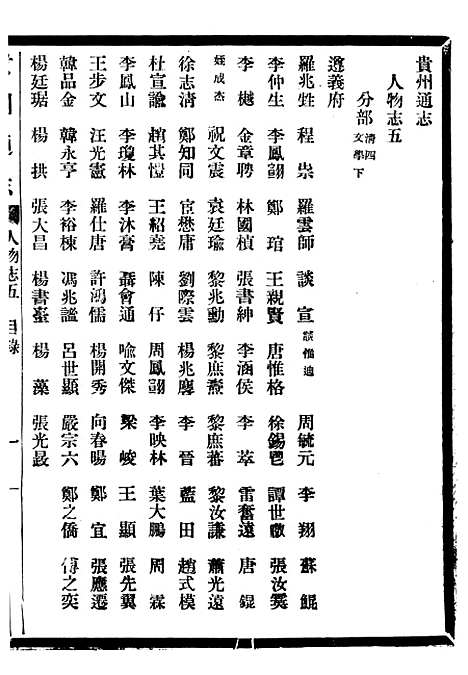 貴州通志
人物志五
分部 清四 文學下
遵義府
羅兆甡 程崇 羅雲師 談宣 談惟迪 周毓元 李翔 蘇鯤
李仲生 李鳳翽 鄭琯 王親賢 唐惟格 徐錫 譚世 張汝霙
李樾 金章聘 林國楨 張書紳 李涵侯 李萃 雷奮遠 唐錕
姪成杰 祝文震 袁廷瑜 黎兆勳 黎庶燾 黎庶蕃 黎汝謙 蕭光遠
徐志清 鄭知同 宦懋庸 劉際雲 楊兆麐 李晉 藍田 趙式模
杜宣諭 趙其愷 王紹堯 陳仔 周鳳翽 李映林 葉大鵬 周霖
李鳳山 李瓊林 李沐膏 聶會通 喻文傑 梁峻 王顯 張先翼
王步文 汪光憲 羅仕唐 許鴻儒 楊開秀 向春暘 鄭宜 張應遷
韓品金 韓永亨 李裕棟 馮兆謐 呂世顯 嚴宗六 鄭之僑 傅之奕
楊廷琚 楊拱 張大昌 楊書臺 楊藻 張光晸
人物志五 目錄 一